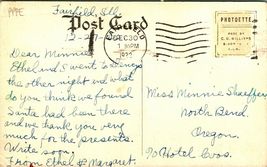 Fairfield, Ill.
Post Card
DEC 30
Dear Minnie
Ethel and I went to
the other night and what
do you think we found
Santa had been there
and we thank you very
much for the presents.
Write soon,
From Ethel & Margaret.
Miss Minnie Shaeffer
North Bend,
Oregon.
% Hotel Coos.
PHOTOETTE
MADE BY
C. U. WILLIAMS